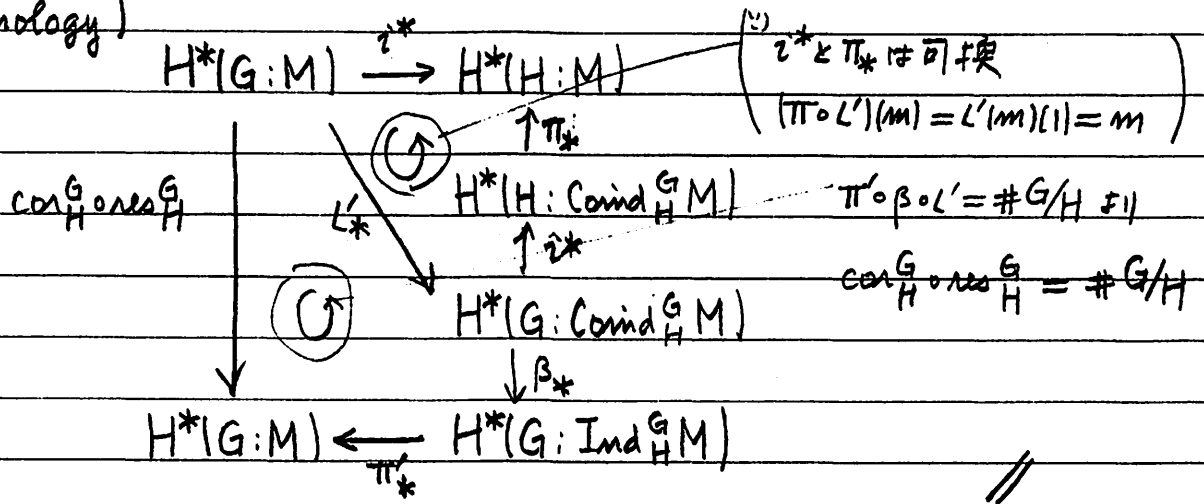 nology)
H*(G:M) →i* H*(H:M)
(∵) i*とπ*は可換
(π∘ι')(m) = ι'(m)(1) = m
↑π*
cor^G_H∘res^G_H
ι'*
H*(H:Coind^G_H M)
π'∘β∘ι' = #G/H より
↑i*
cor^G_H∘res^G_H = #G/H
H*(G:Coind^G_H M)
↓β*
H*(G:M) ←π'* H*(G:Ind^G_H M)
//